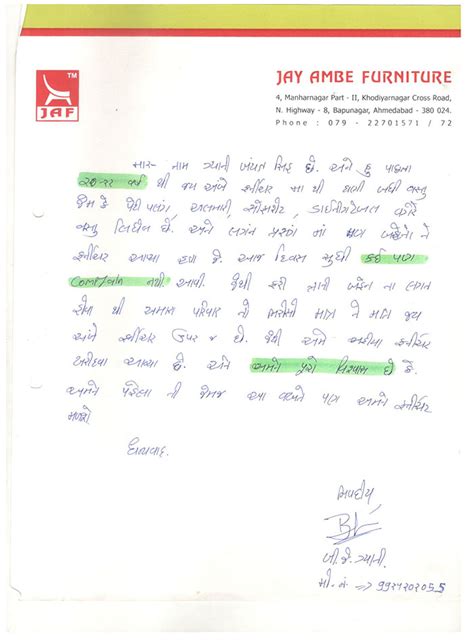 TM
JAF
JAY AMBE FURNITURE
4, Manharnagar Part - II, Khodiyarnagar Cross Road,
N. Highway - 8, Bapunagar, Ahmedabad - 380 024.
Phone : 079 - 22701571 / 72
નામ જ્યાની સિંહ છે. અને હું
20-22 વર્ષ થી જય અંબે ફર્નીચર માં થી ઘણી બધી વસ્તુ
જેમ કે પલંગ, અલમારી, સોફાસેટ, ડાઈનીંગટેબલ વગેરે
વસ્તુ લિધેલ છે. અને લગ્ન માં પણ ને
ફર્નીચર છે. આજ દિવસ સુધી કઈ પણ
Complain નથી આવી. મારી ના લગ્ન
હોવા થી અમારા પરિવાર નો ભરોસો માત્ર ને માત્ર જય
અંબે ફર્નીચર ઉપર જ છે. અમે ફર્નીચર
ખરીદવા આવ્યા છે. અને અમને પુરો વિશ્વાસ છે કે
અમને પહેલા ની જેમજ આ વખતે પણ અમને ફર્નીચર
મળશે
ધન્યવાદ.
બી.જે. જ્યાની.
મો. નં. => 9921202055